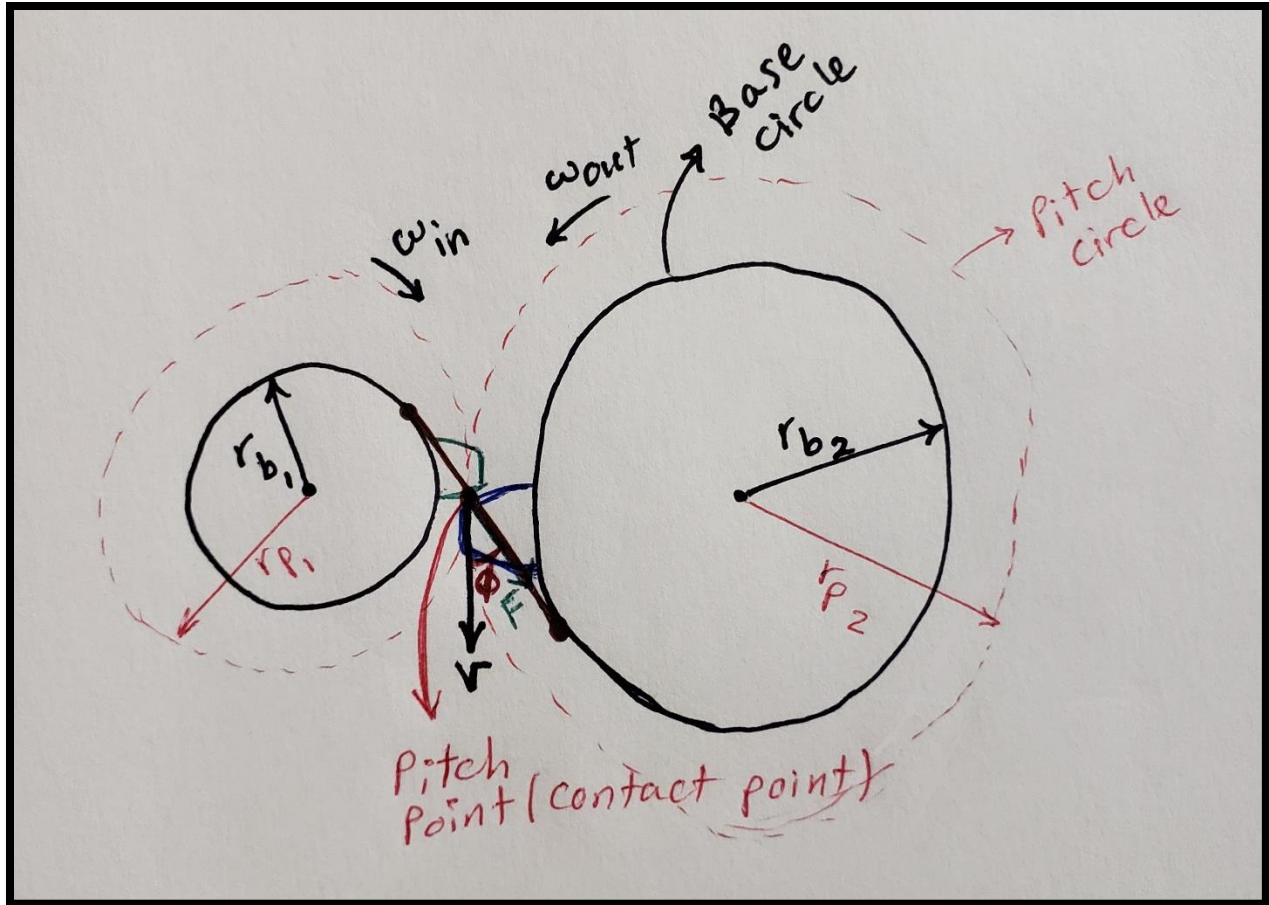 Base
circle
ωout
Pitch
circle
ωin
rb1
rb2
rp1
rp2
ϕ
F
V
Pitch
Point (contact point)